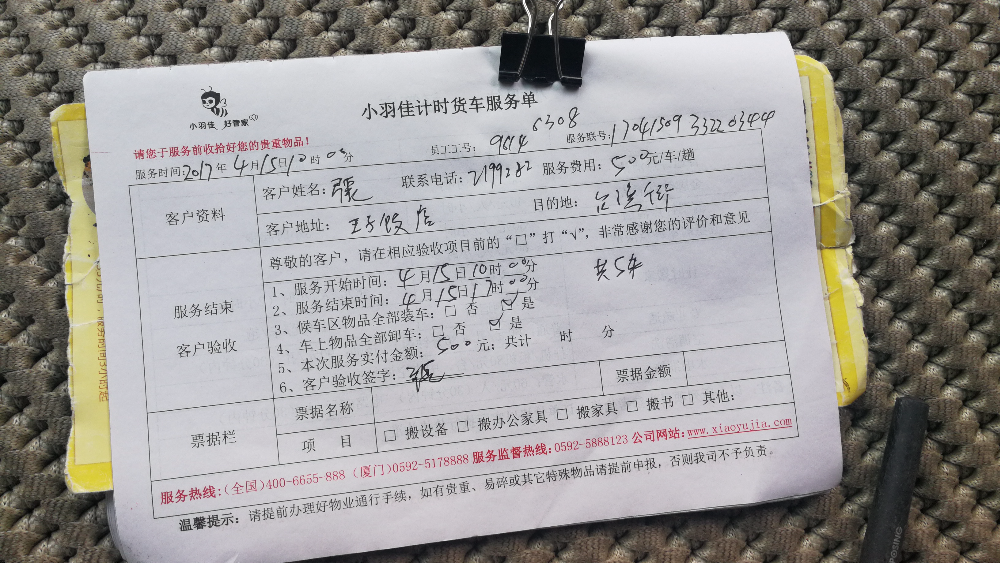 小羽佳 好管家
小羽佳计时货车服务单
请您于服务前收拾好您的贵重物品!
服务时间:2017年4月15日10时00分 员工号: 9814 6308 服务联号:17041509 33220344
客户资料
客户姓名: 联系电话:2199282 服务费用:500元/车/趟
客户地址: 王子饭店 目的地:
尊敬的客户,请在相应验收项目前的“□”打“√”,非常感谢您的评价和意见
服务结束
客户验收
1、服务开始时间:4月15日10时00分 共5车
2、服务结束时间:4月15日17时00分
3、候车区物品全部装车:□ 否 ☑ 是
4、车上物品全部卸车:□ 否 ☑ 是
5、本次服务实付金额:500元;共计 时 分
6、客户验收签字:
票据栏
票据名称 票据金额
项 目 □ 搬设备 □ 搬办公家具 □ 搬家具 □ 搬书 □ 其他:
服务热线:(全国)400-6655-888 (厦门)0592-5178888 服务监督热线:0592-5888123 公司网站:www.xiaoyujia.com
温馨提示:请提前办理好物业通行手续,如有贵重、易碎或其它特殊物品请提前申报,否则我司不予负责。